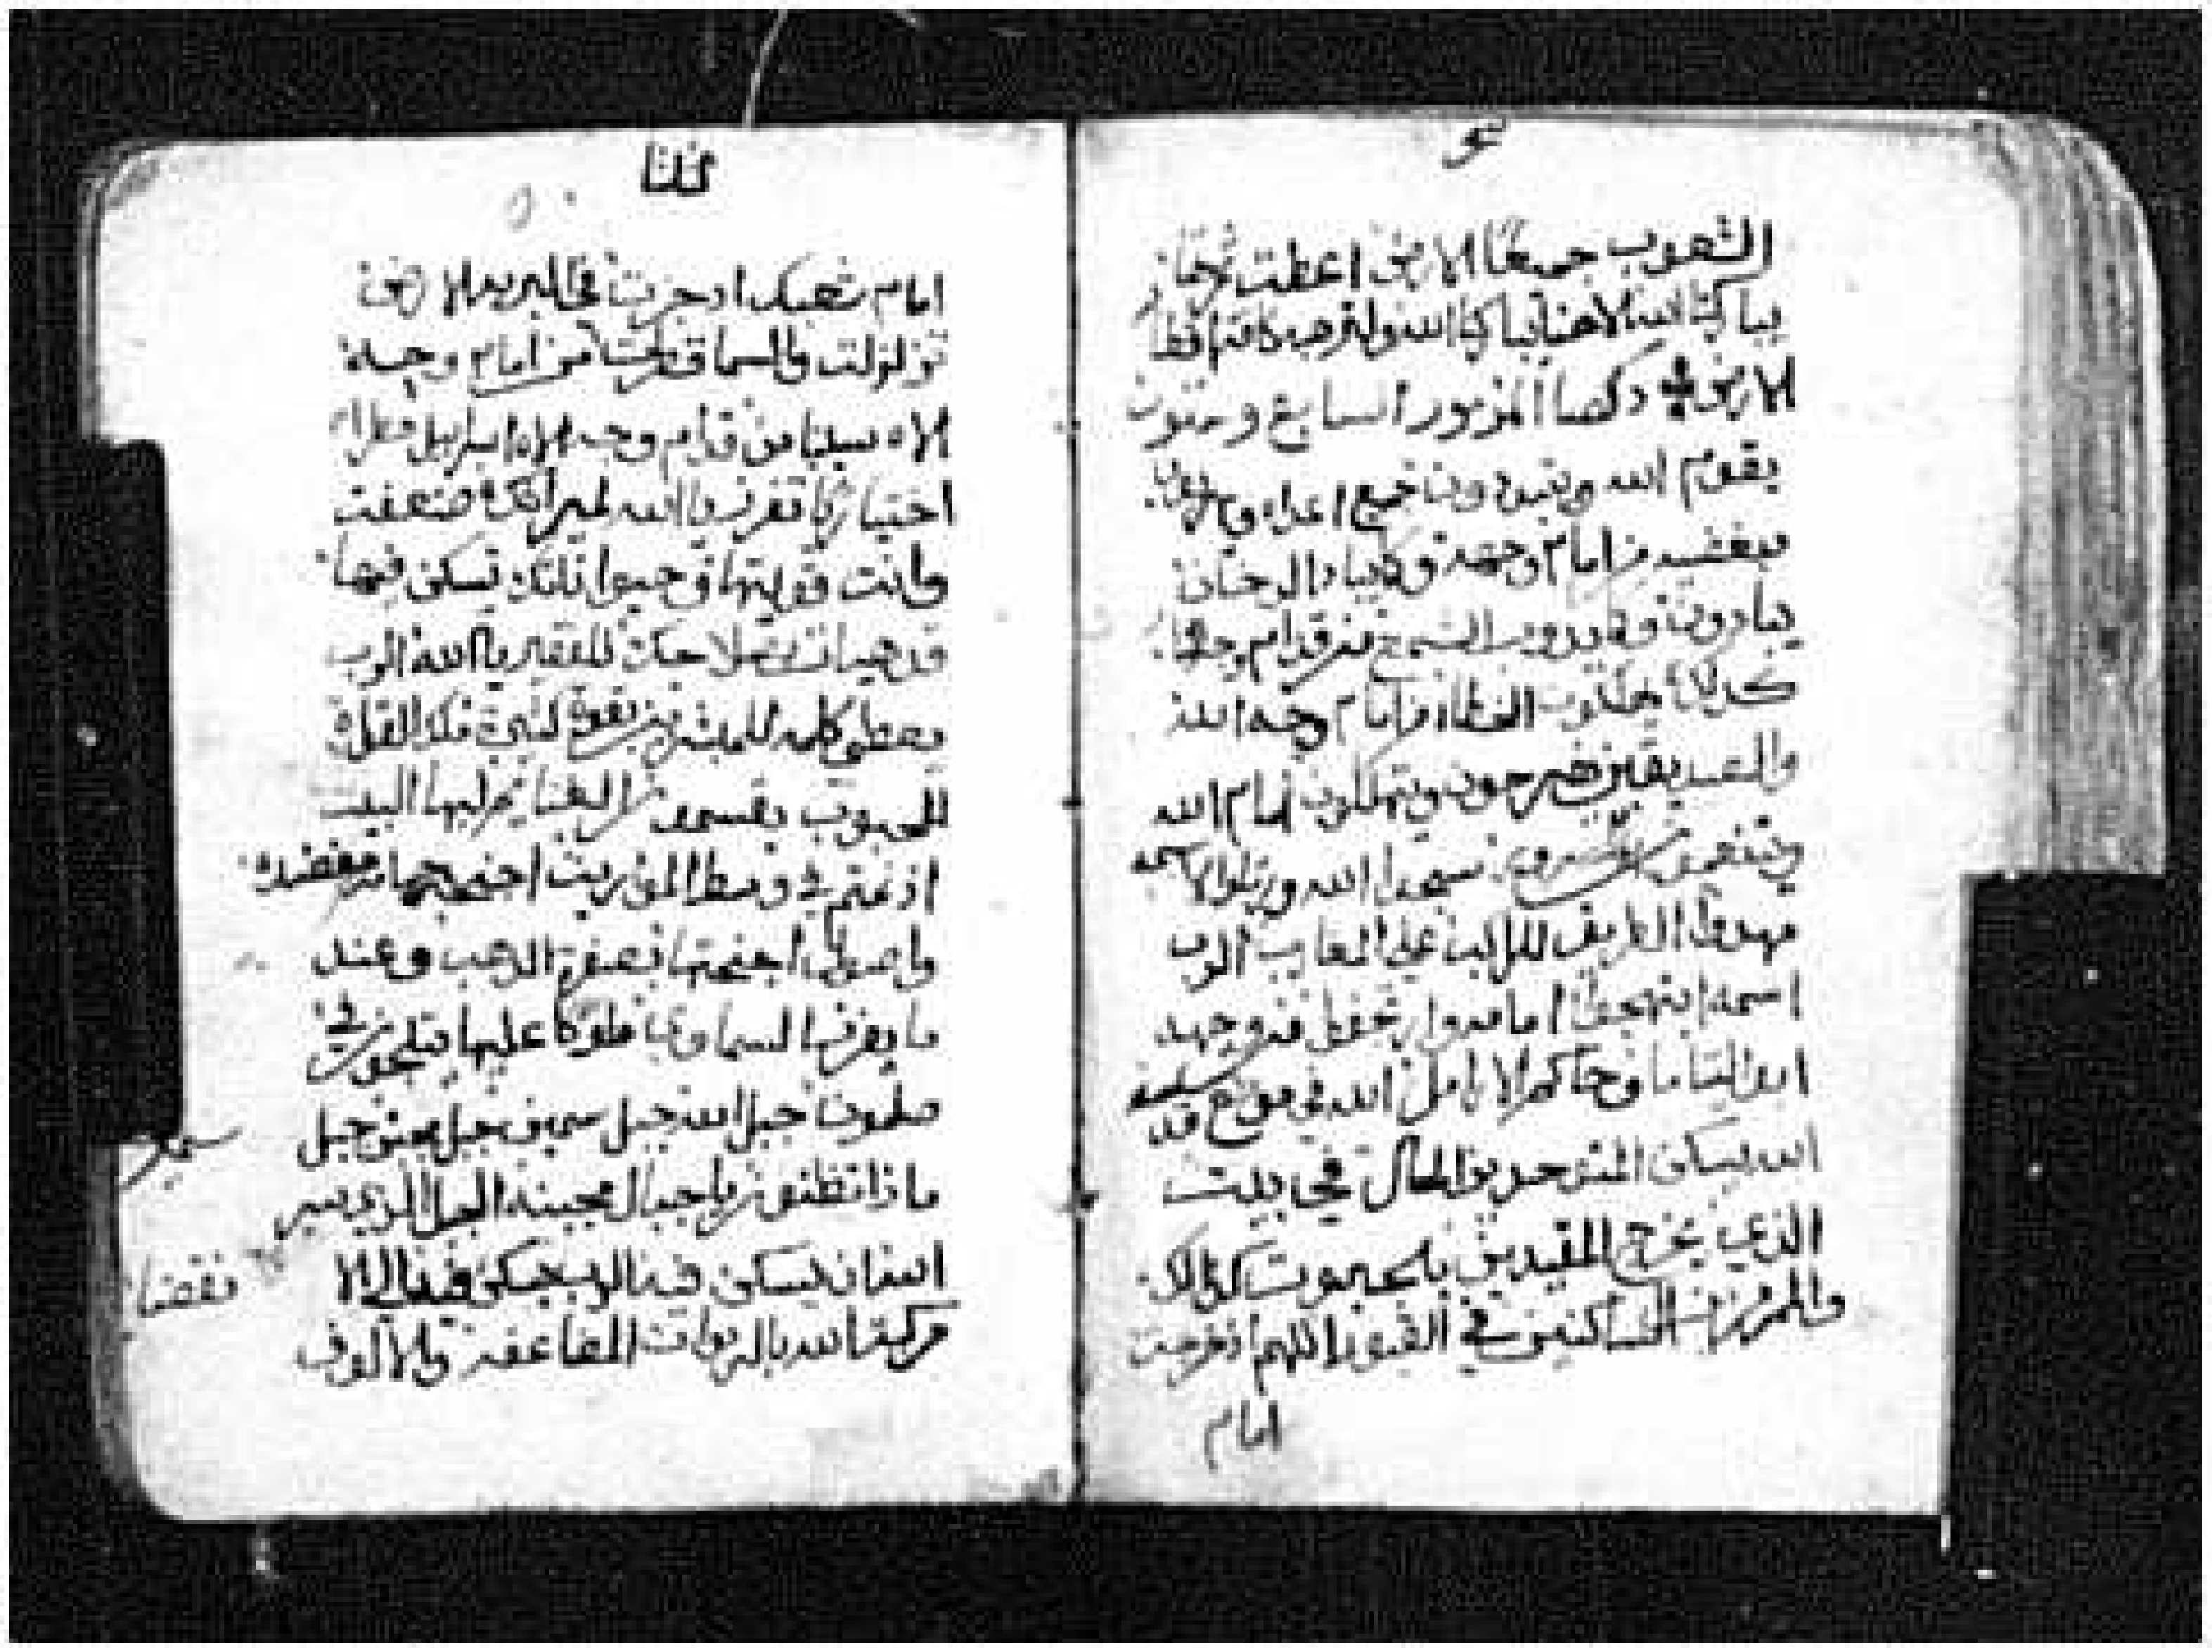 الشعوب جميعا الارض اعطت ثمارها
يباركنا الله الاهنا يباركنا الله ولترهبه كل اقطار
الارض دكصا المزمور السابع وستون
يقوم الله ويتبددون جميع اعداه ويهربوا
مبغضيه من امام وجهه وكما يباد الدخان
يبادون وكما يدوب الشمع من قدام وجه النار
كدلك يهلكون الخطاه من امام وجه الله
والصديقين يفرحون ويتهللون امام الله
ويتنعمون بالسرور سبحوا الله ورتلوا لاسمه
مهدوا الطريق للراكب على المغارب الرب
اسمه ابتهجوا امامه وارتجفوا من وجهه
ابو اليتاما وحاكم الارامل الله في موضع قدسه
الله يسكن المتوحدين الحال في بيت
الذي يخرج المقيدين بالجبروت كدلك
والمرمرين الساكنين في القبور اللهم اذ خرجت
امام
امام شعبك اد جزت في البريه الارض
تزلزلت والسما قطرت من امام وجه
الاه سينا من قدام وجه الاه اسراييل مطرا
اختياريا تفرز يا الله لميراتك ضعفت
وانت قويتها وحيواناتك تسكن فيها
قد هيات بصلاحك للفقير يا الله الرب
يعطي كلمه للمبشرين بقوة كثيرة ملك القوات
المحبوب يقسمه الغنايم لبها البيت
اذ نمتم في وسط المواريث اجنحة حمامة مفضضه
واصول اجنحتها بصفرة الدهب وعند
ما يفرز السماوي ملوكا عليها يثلجون في
صلمون جبل الله جبل سمين جبل مجبن جبل
ماذا تظنون يا جبال مجبنه الجبل الذي سر
الله ان يسكن فيه الرب يسكن فيه الى الانقضا
مركبة الله بالربوات المضاعفه والالوف